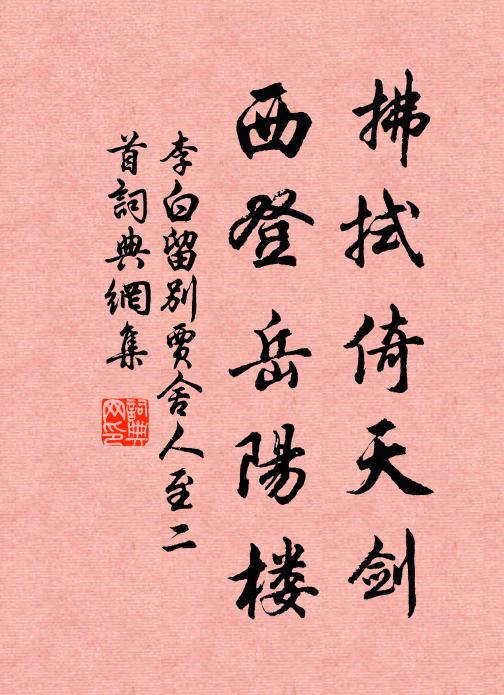 拂拭倚天剑
西登岳陽楼
李白留别贾舍人至二
首詞典網集
詞典网印